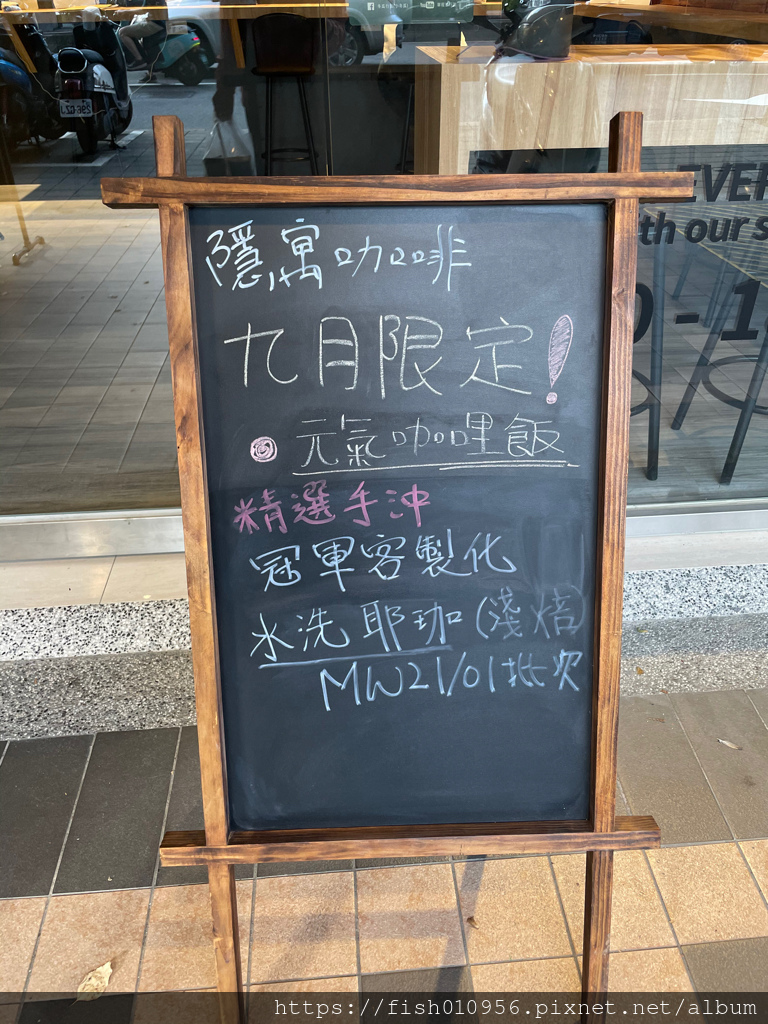 隱寓咖啡
九月限定!
元氣咖哩飯
精選手沖
冠軍客製化
水洗耶珈(淺焙)
MW21/01批次
EVER
th our s
0 - 1
https://fish010956.pixnet.net/album